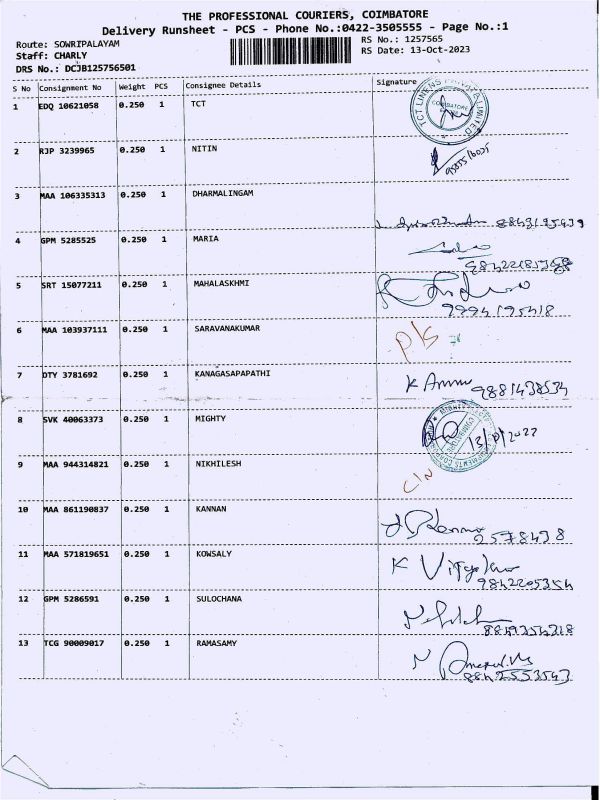 THE PROFESSIONAL COURIERS, COIMBATORE
Delivery Runsheet - PCS - Phone No.:0422-3505555 - Page No.:1
Route: SOWRIPALAYAM
RS No.: 1257565
Staff: CHARLY
RS Date: 13-Oct-2023
DRS No.: DCJB125756501
S No Consignment No Weight PCS Consignee Details Signature
1 EDQ 10621058 0.250 1 TCT
TCT LINENS PRIVATE LIMITED COIMBATORE
2 RJP 3239965 0.250 1 NITIN
3 MAA 106335313 0.250 1 DHARMALINGAM
4 GPM 5285525 0.250 1 MARIA
5 SRT 15077211 0.250 1 MAHALASKHMI
9994195418
6 MAA 103937111 0.250 1 SARAVANAKUMAR
P/S
7 DTY 3781692 0.250 1 KANAGASAPAPATHI
9881438534
8 SVK 40063373 0.250 1 MIGHTY
9 MAA 944314821 0.250 1 NIKHILESH
C/N
10 MAA 861190837 1 0.250 KANNAN
2578498
11 MAA 571819651 0.250 1 KOWSALY
9842205354
12 GPM 5286591 0.250 1 SULOCHANA
13 TCG 90009017 0.250 1 RAMASAMY
9842553543